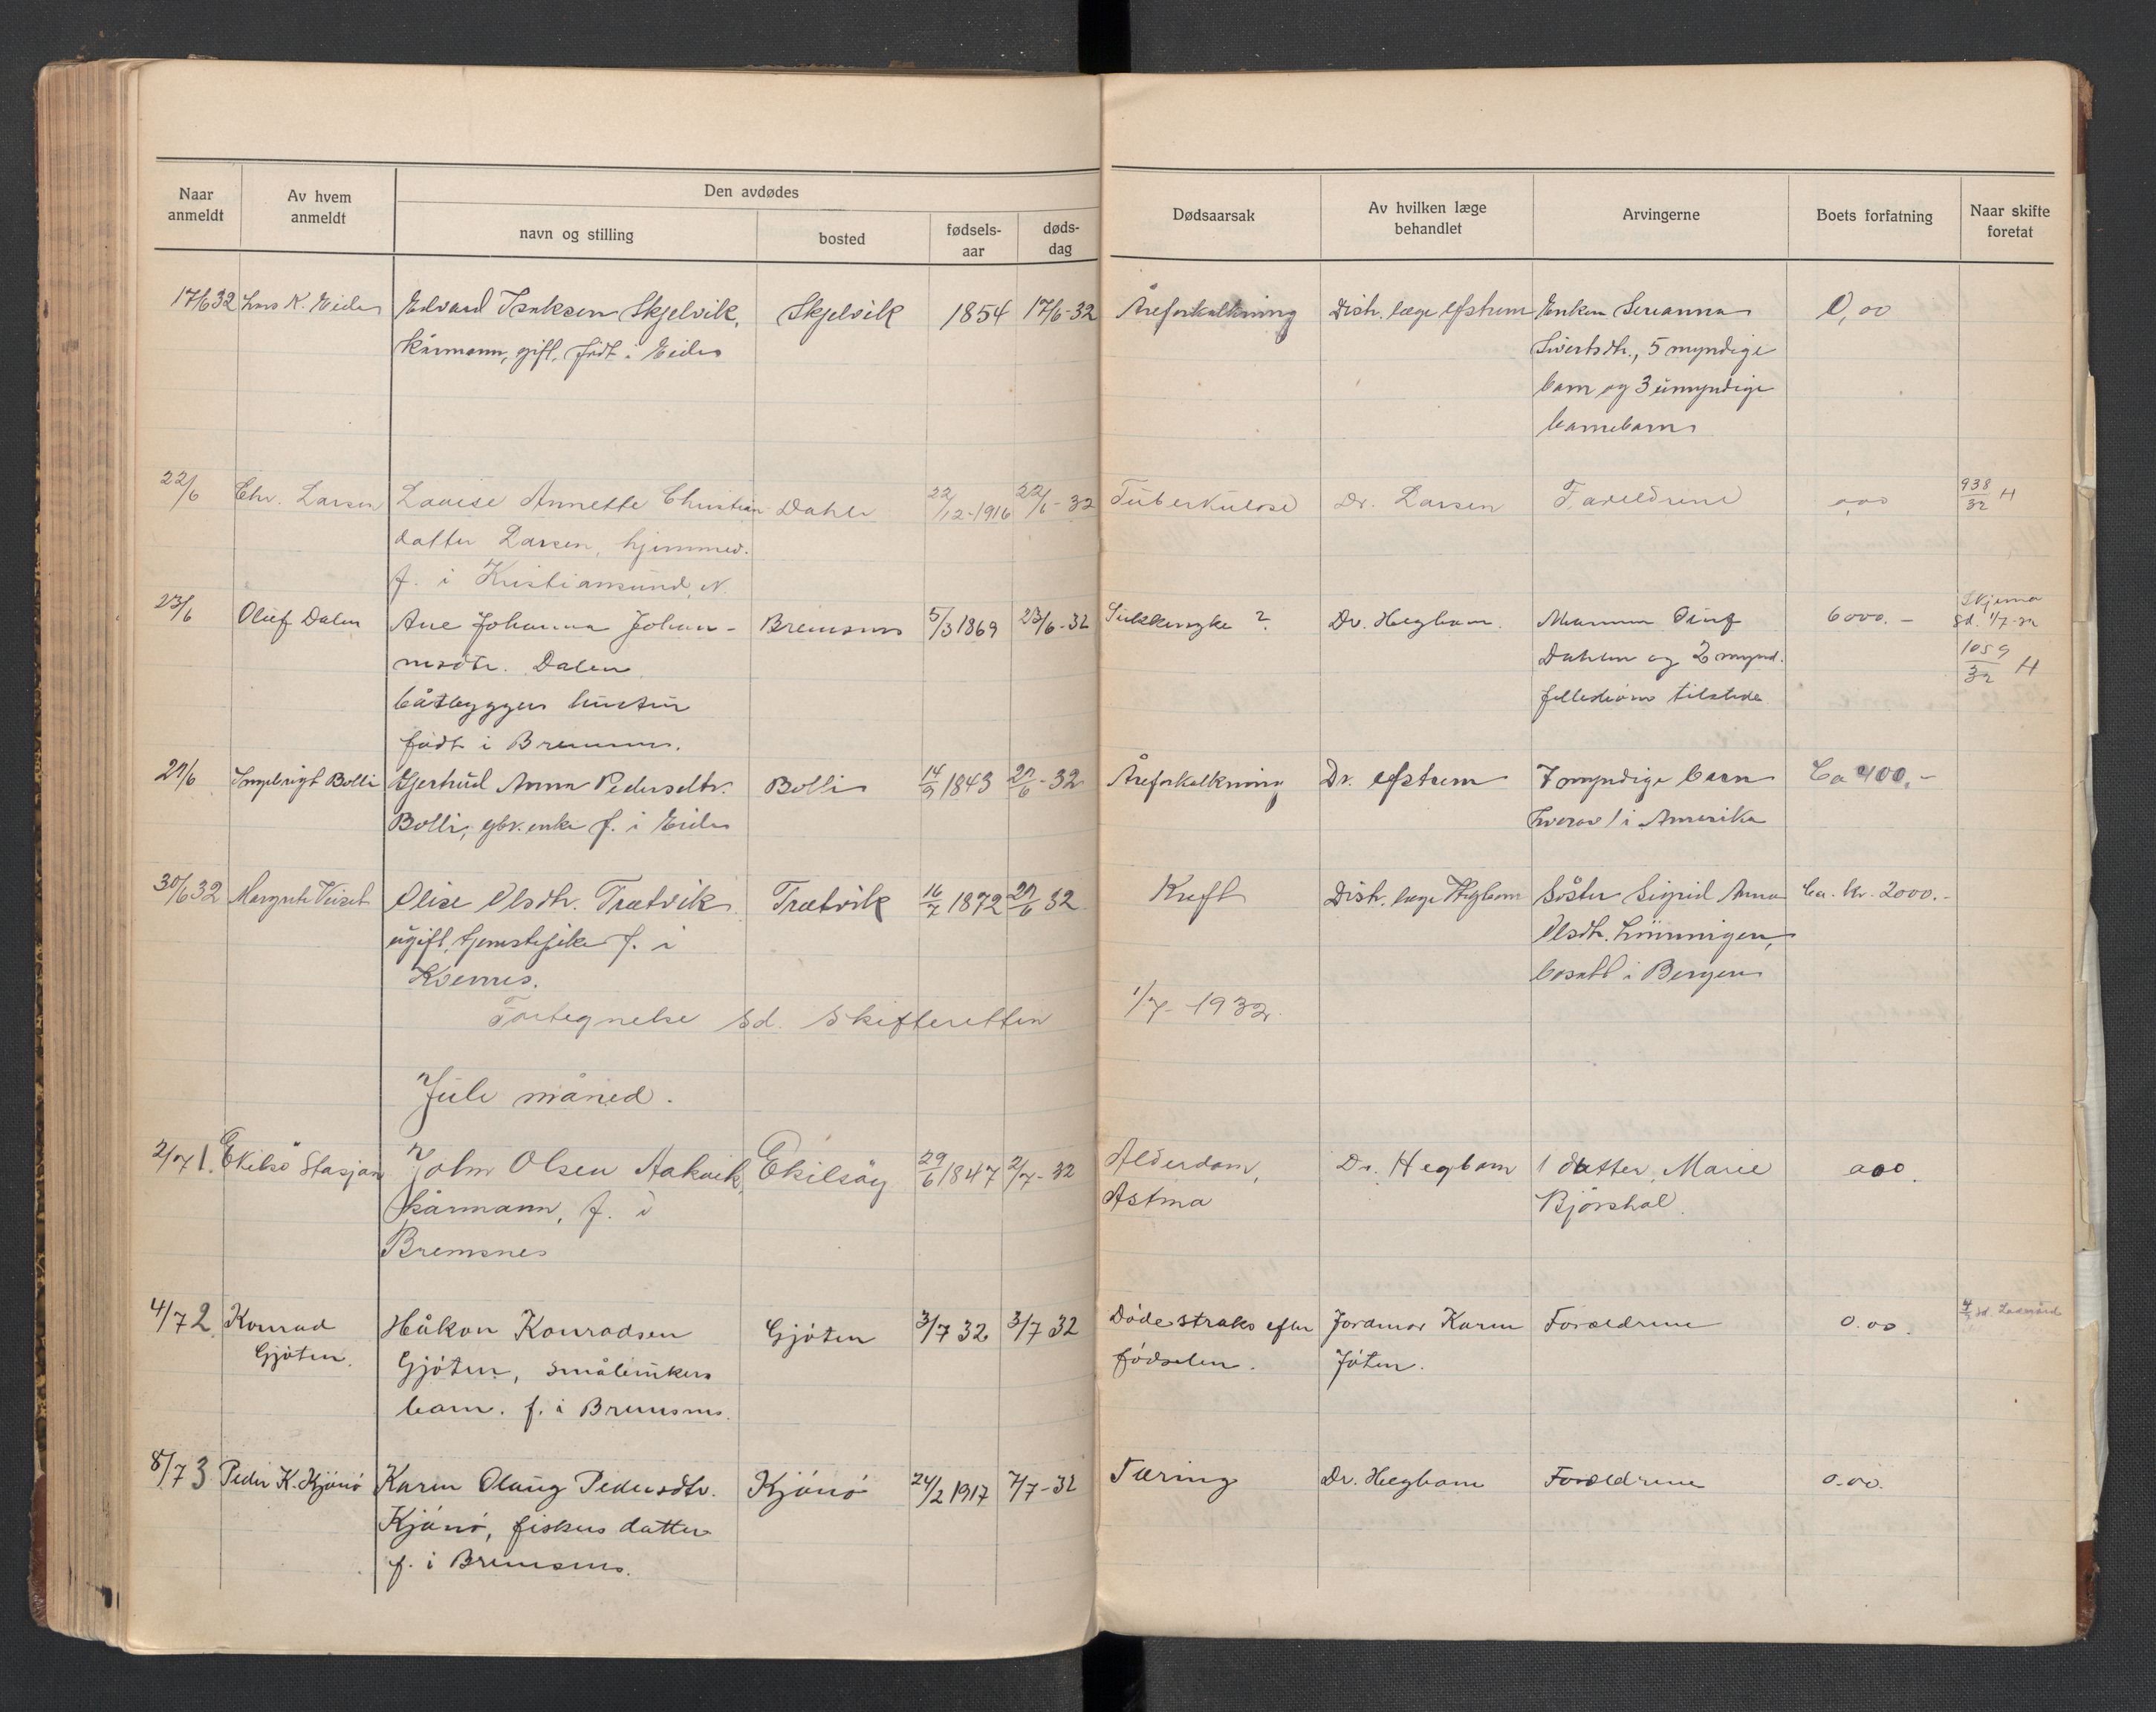 Naar anmeldt
Av hvem anmeldt
Den avdødes
navn og stilling
bosted
fødsels-aar
døds-dag
Dødsaarsak
Av hvilken læge behandlet
Arvingerne
Boets forfatning
Naar skifte foretat
17/6 32 K. Eide Edvard Isaksen Skjelvik, Skjelvik 1854 17/6-32 Åreforkalkning Distr. læge Enken Serianna 0,00
kårmann, gift, født i Eide Sivertsdtr., 5 myndige
barn og 3 umyndige
barnebarn
22/6 Chr. Larsen Lovise Annette Christian Dahle 22/12-1916 22/6-32 Tuberkulose Dr. Larsen Foreldrene 0,00 938/32 H
datter Larsen, hjemmev.
f. i Kristiansund N.
23/6 Oluf Dalen Ane Johanna Johan- Bremsnes 5/3 1869 23/6-32 Sukkersyke? Dr. Hegbom. Mannen Oluf 6000.- Skjema
nesdtr. Dalen Dahlen og 2 mynd. sd. 1/7-32
båtbyggers hustru tilstede 1059/32 H
født i Bremsnes.
27/6 Ingebrigt Bolli Gjertrud Anna Pedersdtr. Bolli 14/9 1843 27/6-32 Åreforkalkning Dr. 7 myndige barn Ca 400.-
Bolli, gbr. enke f. i Eide hvorav 1 i Amerika
30/6 32 Margrete Veiset Olise Olsdtr. Trætvik Trætvik 16/7 1872 27/6 32 Kreft Distr. læge Hegbom Søster Sigrid Anna Ca. kr. 2000.-
ugift, tjenestepike f. i Olsdtr.
Kvernes. bosatt i Bergen
Fortegnelse sd. Skifteretten 1/7-1932.
Juli måned.
2/7 1. Ekilsø Stasjon John Olsen Aakvik, Ekilsøy 29/6 1847 2/7-32 Alderdom, Dr. Hegbom 1 datter, Marie 0,00.
kårmann, f. i Astma Bjørshol.
Bremsnes
4/7 2. Konrad Håkon Konradsen Gjøten 3/7 32 3/7 32 Døde straks efter Jordmor Karen Foreldrene 0.00. 4/7 sd.
Gjøten. Gjøten, småbrukers fødselen. Jøten.
barn. f. i Bremsnes.
8/7 3 Peder K. Kjønø Karen Olaug Pedersdtr. Kjønø 24/2 1917 7/7-32 Tæring Dr. Hegbom Foreldrene 0.00.
Kjønø, fiskers datter
f. i Bremsnes.